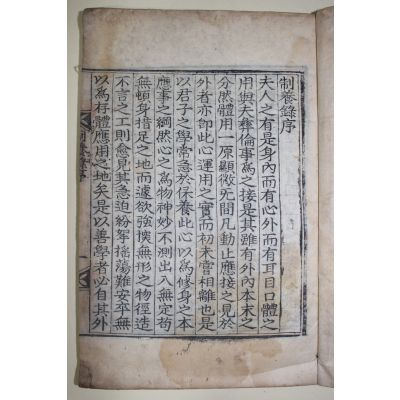 制養錄序
夫人之有是身內而有心外而有耳目口體之
用與夫彝倫事爲之接是其雖有外內本末之
分然體用一原顯微无間凡動止應接之見於
外者亦卽此心運用之實而初未嘗相離也是
以君子之學常急於保養此心以爲修身之本
應事之綱然心之爲物神妙不測出入無定苟
無頓身措足之地而遽欲强摸無形之物徑造
不言之工則愈見其急迫紛挐搖蕩難安卒無
以爲存體應用之地矣是以善學者必自其外